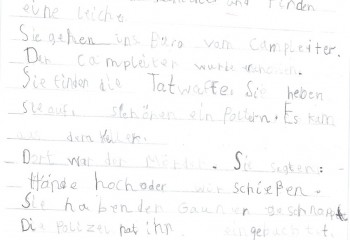 und finden
eine Leiche
Sie gehen ins Büro vom Campleiter.
Der Campleiter wurde
Sie finden die Tatwaffe. Sie heben
sie auf. Sie hören ein Poltern. Es kam
aus dem Keller.
Dort war der Mörder. Sie sagten:
Hände hoch oder wir schießen.
Sie haben den Gauner geschnappt
Die Polizei hat ihn